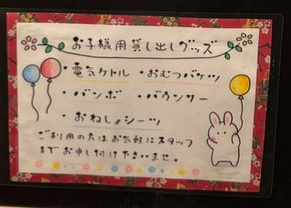 お子様用貸し出しグッズ
・電気ケトル ・おむつバケツ
・バンボ ・バウンサー
・おねしょシーツ
ご利用の方はお気軽にスタッフ
までお申し付け下さいませ。